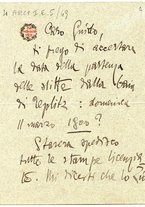 Caro Guido,
ti prego di accertare
la data della partenza
delle slitte dalla
di Teplitz: domenica
11 marzo 1900?
Stasera spedisco
tutte le stampe
Mi diresti che lo